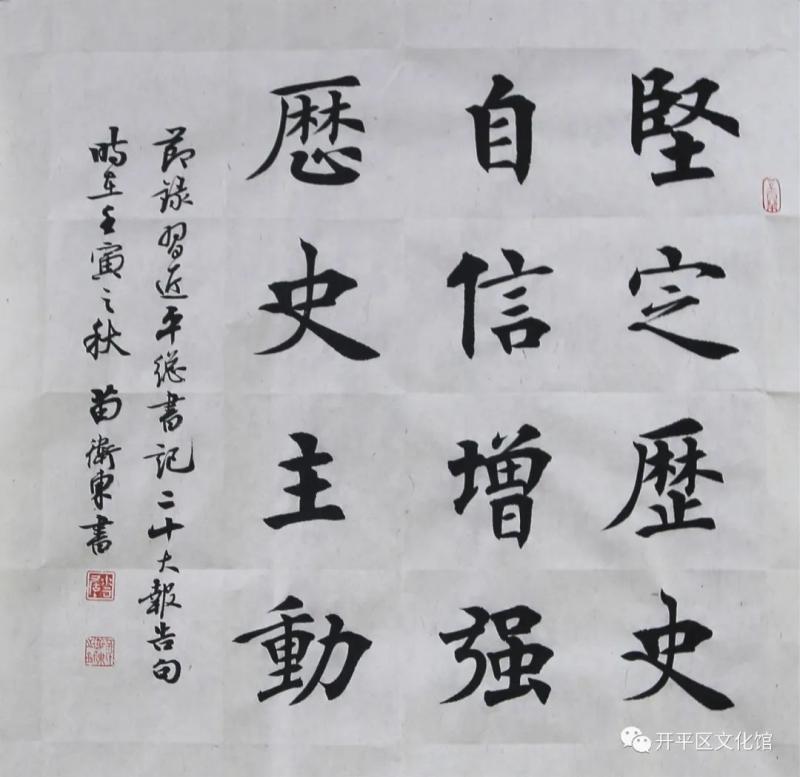 堅定歷史
自信增强
厯史主動
節録習近平總書記二十大報告句
時在壬寅之秋 苗衛東書
开平区文化馆